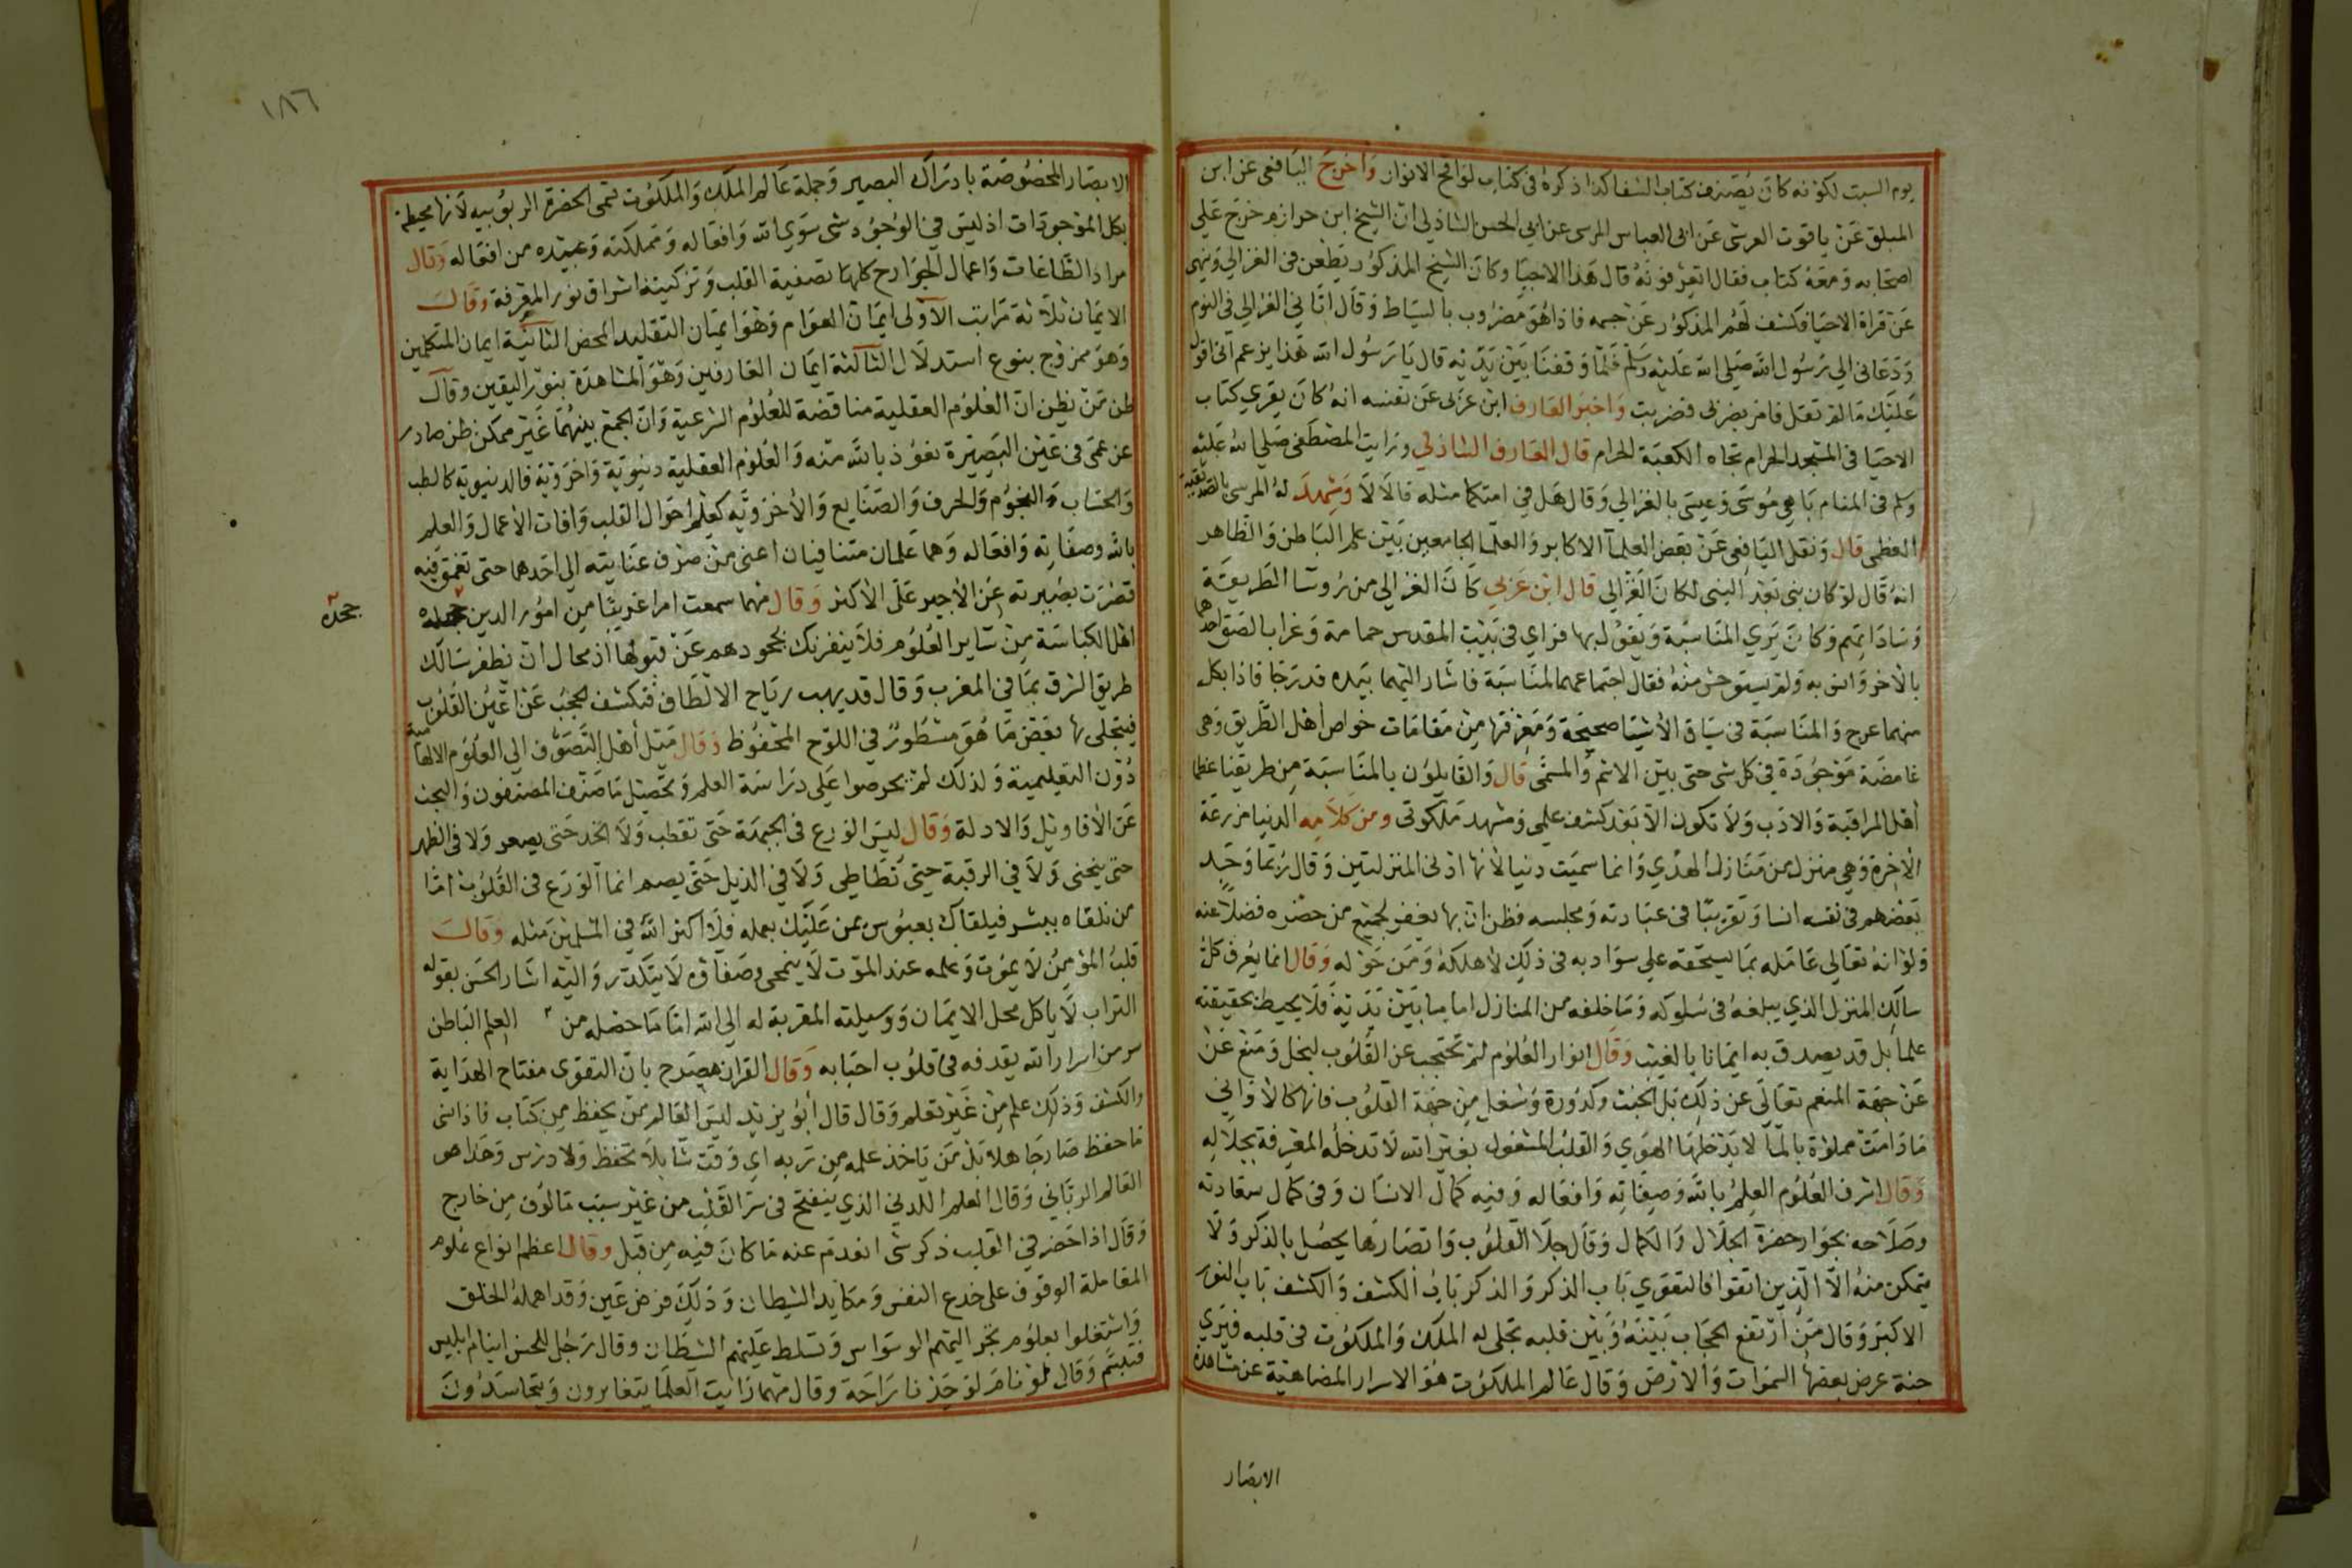 يوم السبت لكونه كان يصنف كتاب الشفا كذا ذكره في كتاب لواقح الانوار وَاخرج اليافعي عن ابن
الميلق عن ياقوت العرشي عن ابي العباس المرسي عن ابي الحسن الشاذلي ان الشيخ ابن حرازم خرج علي
اصحابه ومعه كتاب فقال اتعرفونه قال هذا الاحيا وكان الشيخ المذكور يطعن في الغزالي وينهي
عن قراة الاحيا فكشف لهم المذكور عن جسمه فاذا هو مضروب بالسياط وقال اتاني الغزالي في النوم
ودعاني الي رسول الله صلى الله عليه وسلم فلما وقفنا بين يديه قال يا رسول الله هذا يزعم اني اقول
عليك ما لم تقل فامر بضربي فضربت واخبر العارف ابن عربي عن نفسه انه كان يقري كتاب
الاحيا في المسجد الحرام تجاه الكعبة الحرام قال العارف الشاذلي ورايت المصطفى صلي الله عليه
وسلم في المنام باهي موسى وعيسى بالغزالي وقال هل في امتكما مثله قالا لا وشهد له المرسي بالصديقية
العظمى قال ونقل اليافعي عن بعض العلمآ الاكابر والعلما الجامعين بين علم الباطن والظاهر
انه قال لو كان نبي بعد النبي لكان الغزالي قال ابن عربي كان الغزالي من روسا الطريقة
وساداتهم وكان يري المناسبة ويقول بها فراي في بيت المقدس حمامة وغرابا لصق احدهما
بالاخر وانس به ولم يستوحش منه فقال اجتماعهما لمناسبة فاشار اليهما بيده فدرجا فاذا بكل
منهما عرج والمناسبة في سياق الاشيا صحيحة ومعرفتها من مقامات خواص أهل الطريق وهي
غامضة موجودة في كل شي حتى بين الاسم والمسمى قال والقايلون بالمناسبة من طريقنا عظما
أهل المراقبة والادب ولا تكون الا بعد كشف علمي ومشهد ملكوتي ومن كلامه الدنيا مزرعة
الاخرة وهي منزل من منازل الهدي وانما سميت دنيا لانها ادنى المنزلتين وقال ربما وجد
بعضهم في نفسه انسا وتقريبا في عبادته ومجلسه فظن ان بها يغفر لجميع من حضره فضلا عنه
ولو انه تعالي عامله بما يستحقه علي سوادبه في ذلك لاهلكه ومن حوله وقال انما يعرف كل
سالك المنزل الذي يبلغه في سلوكه وما خلفه من المنازل اما ما بين يديه فلا يحيط بحقيقته
علما بل قد يصدق به ايمانا بالغيب وقال انوار العلوم لم تحتجب عن القلوب لبخل ومنع عن
عن جهة المنعم تعالى عن ذلك بل لخبث وكدورة وشغل من جهة القلوب فانها كالاواني
ما دامت مملوة بالمآ لا يدخلها الهوي والقلب المشغول بغير الله لا تدخله المعرفة بجلاله
وقال اشرف العلوم العلم بالله وصفاته وافعاله وفيه كمال الانسان وفي كمال سعادته
وصلاحه بجوار حضرة الجلال والكمال وقال جلا القلوب وابصارها يحصل بالذكر ولا
يتمكن منه الا الذين اتقوا فالتقوي باب الذكر والذكر باب الكشف والكشف باب النور
الاكبر وقال من ارتفع الحجاب بينه وبين قلبه تجلى له الملك والملكوت في قلبه فيري
جنة عرض بعضها السموات والارض وقال عالم الملكوت هو الاسرار المضاهية عن مشاهدة
الابصار
١٨٦
الابصار المخصوصة بادراك البصير وجملة عالم الملك والملكوت تسمى الحضرة الربوبيه لانها محيطة
بكل الموجودات اذ ليس في الوجود شى سوي الله وافعاله ومملكته وعبيده من افعاله وقال
مراد الطاعات واعمال الجوارح كلها تصفية القلب وتزكيته اشراق نور المعرفة وقال
الايمان ثلاثة مراتب الآولى ايمان العوام وهو ايمان التقليد المحض الثانية ايمان المتكلمين
وهو ممزوج بنوع استدلال الثالثة ايمان العارفين وهو المشاهدة بنور اليقين وقال
ظن من يظن ان العلوم العقلية مناقضة للعلوم الشرعية وان الجمع بينهما غير ممكن ظن صادر
عن عمى في عين البصيرة نعوذ بالله منه والعلوم العقلية دنيوية واخروية فالدنيوية كالطب
والحساب والنجوم والحرف والصنايع والأخروية كعلم احوال القلب وافات الاعمال والعلم
بالله وصفاته وافعاله وهما علمان متنافيان اعني من صرف عنايته الي احدهما حتى تعمق فيه
قصرت بصيرته عن الاخر على الاكثر وقال مهما سمعت امرا غريبا من امور الدين
جحده
اهل الكياسة من ساير العلوم فلا ينفرنك جحودهم عن قبولها اذ محال ان يظفر سالك
طريق الشرق بما في المغرب وقال قد يهب رياح الالطاف فتكشف الحجب عن اعين القلوب
فيتجلى بها بعض ما هو مسطور في اللوح المحفوظ وقال ميل أهل التصوف الي العلوم الالهامية
دون التعليمية ولذلك لم يحرصوا علي دراسة العلم وتحصيل ما صنف المصنفون والبحث
عن الاقاويل والادلة وقال ليس الورع في الجبهة حتى تقطب ولا الخد حتى يصعر ولا في الظهر
حتى ينحني ولا في الرقبة حتى تطاطي ولا في الذيل حتى يضم انما الورع في القلوب اما
من تلقاه ببشر فيلقاك بعبوس يمن عليك بعمله فلا اكثر الله في المسلمين مثله وقال
قلب المؤمن لا يموت وعلمه عند الموت لا ينمحي وصفاؤه لا يتكدر واليه اشار الحسن بقوله
التراب لا ياكل محل الايمان ووسيلته المقربة له الى الله اما ما حصله من العلم الباطن
سر من اسرار الله يقدفه في قلوب احبابه وقال القران مصرح بان التقوى مفتاح الهداية
والكشف وذلك علم من غير تعلم وقال قال أبو يزيد ليس العالم من يحفظ من كتاب فاذا نسي
ما حفظ صار جاهلا بل من ياخذ علمه من ربه اي وقت شا بلا تحفظ ولا درس وهذا هو
العالم الرباني وقال العلم اللدني الذي ينفتح في سر القلب من غير سبب مالوف من خارج
وقال اذا حضر في القلب ذكر شى انعدم عنه ما كان فيه من قبل وقال اعظم انواع علوم
المعاملة الوقوف على خدع النفس ومكايد الشيطان وذلك فرض عين وقد اهمله الخلق
واشتغلوا بعلوم تجر اليهم الوسواس وتسلط عليهم الشيطان وقال رجل للحسن اينام ابليس
فتبسم وقال لو نام لوجدنا راحة وقال مهما رايت العلما يتغايرون ويتحاسدون